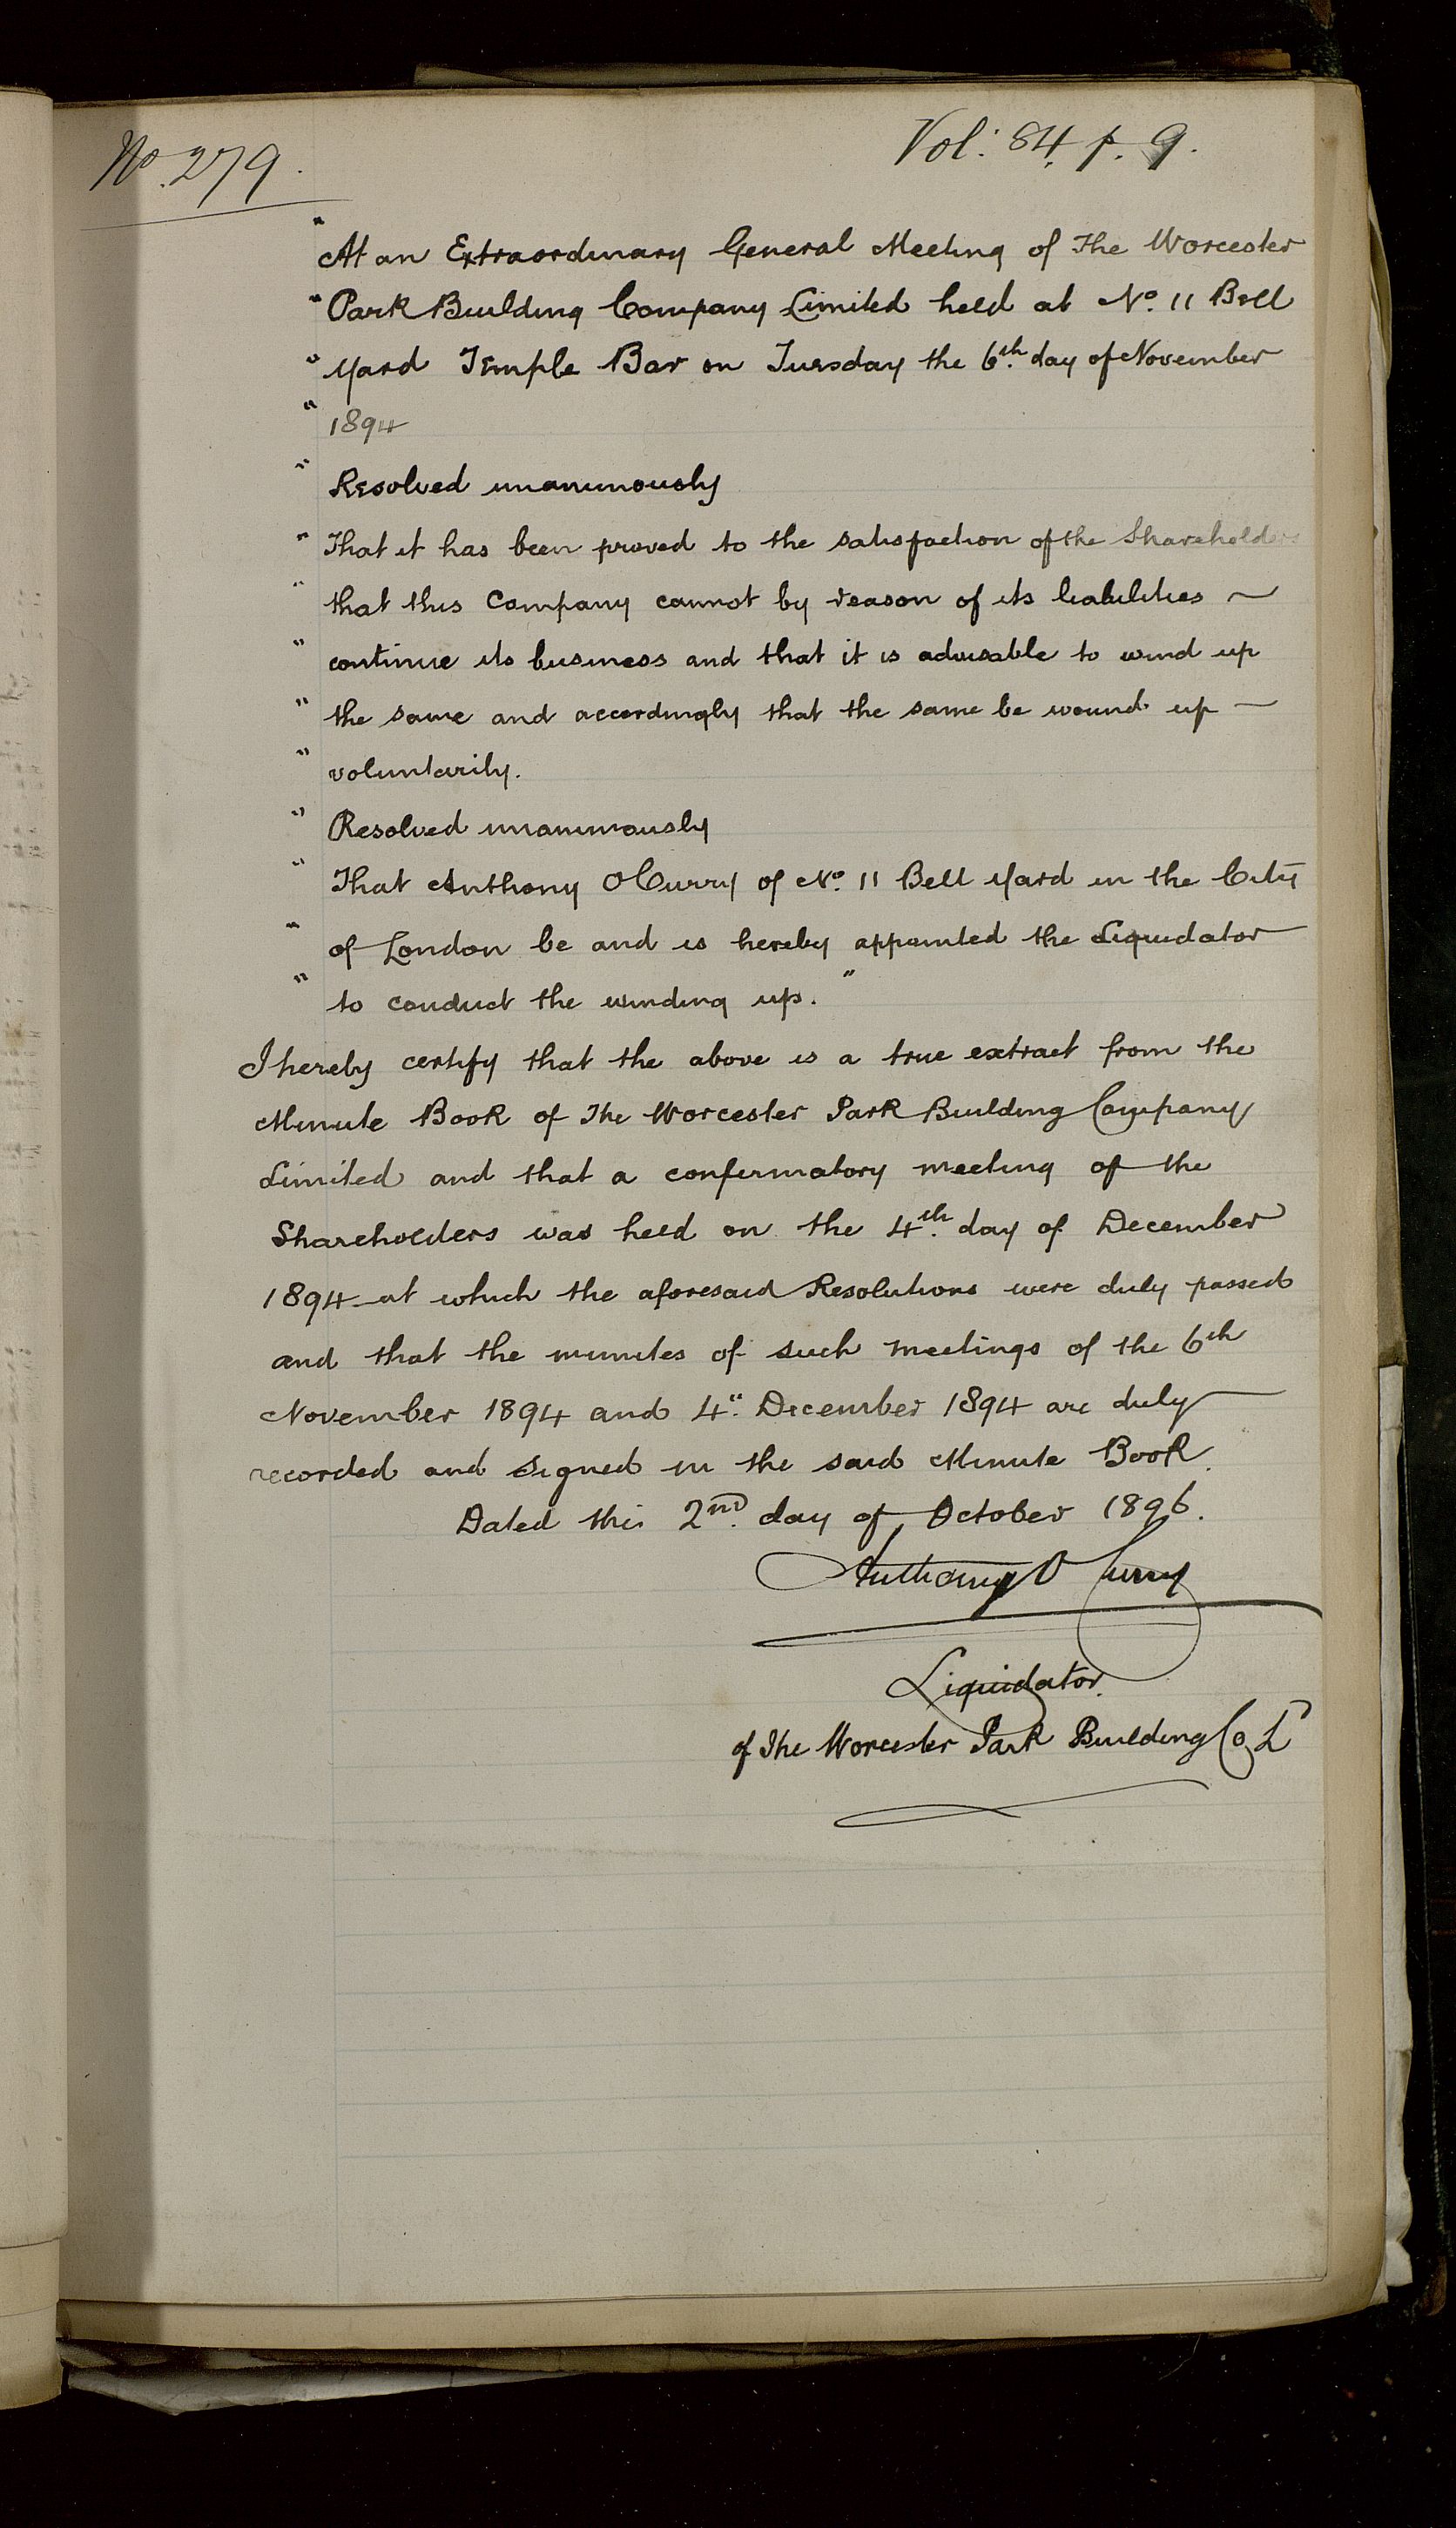 No. 279.
Vol: 84. p. 9.
"At an Extraordinary General Meeting of The Worcester
"Park Building Company Limited held at No. 11 Bell
"Yard Temple Bar on Tuesday the 6th. day of November
"1894
"Resolved unanimously
"That it has been proved to the satisfaction of the Shareholders
"that this Company cannot by reason of its liabilities ~
"continue its business and that it is advisable to wind up
"the same and accordingly that the same be wound up —
"voluntarily.
"Resolved unanimously
"That Anthony O'Curry of No. 11 Bell Yard in the City
"of London be and is hereby appointed the Liquidator
"to conduct the winding up."
I hereby certify that the above is a true extract from the
Minute Book of The Worcester Park Building Company
Limited and that a confirmatory meeting of the
Shareholders was held on the 4th. day of December
1894 at which the aforesaid Resolutions were duly passed
and that the minutes of such meetings of the 6th
November 1894 and 4". December 1894 are duly
recorded and signed in the said Minute Book.
Dated this 2nd. day of October 1896.
Anthony O'Curry
Liquidator.
of The Worcester Park Building Co Ld